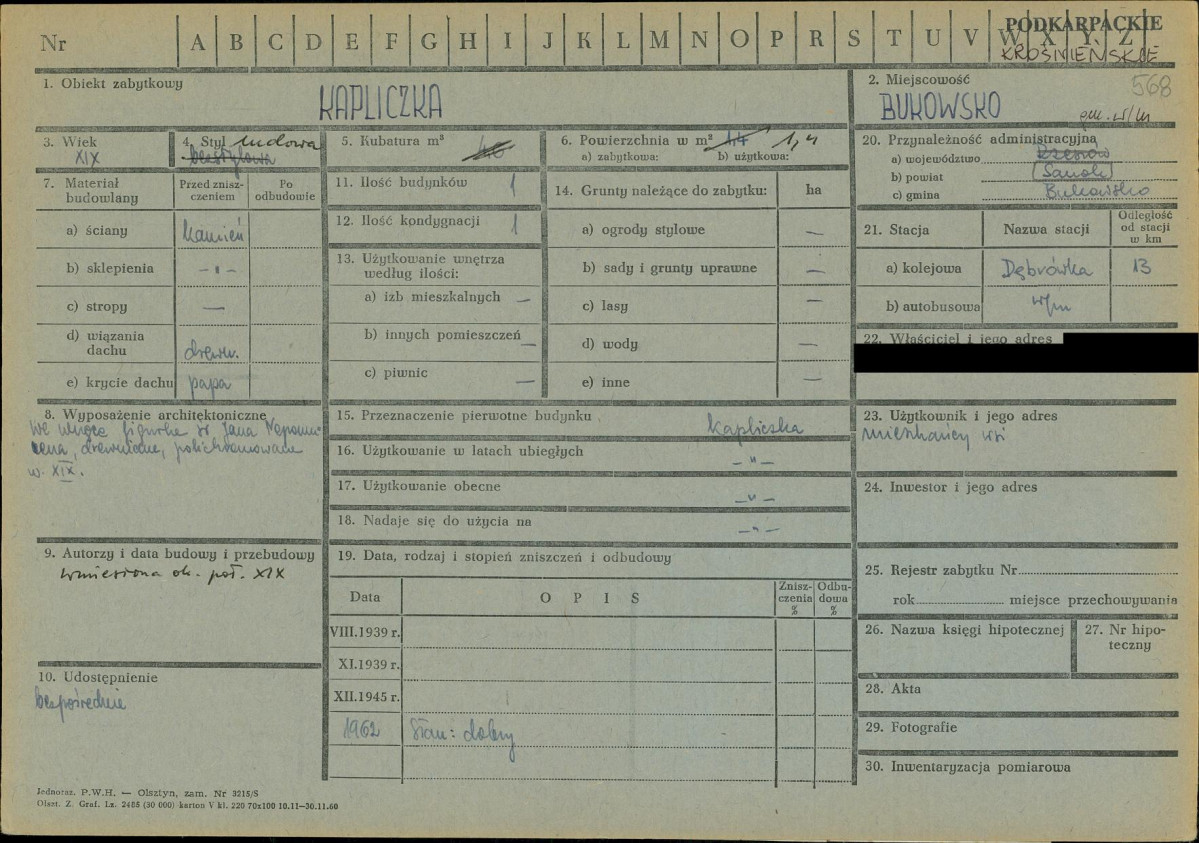 Nr A B C D E F G H I J K L M N O P R S T U V W X Y Z
PODKARPACKIE
KROŚNIEŃSKIE
1. Obiekt zabytkowy
KAPLICZKA
2. Miejscowość
568
BUKOWSKO
gm. w/m
3. Wiek
XIX
4. Styl ludowa
bezstylowa
5. Kubatura m³
6. Powierzchnia w m² 1,4
a) zabytkowa: b) użytkowa:
7. Materiał budowlany
Przed zniszczeniem
Po odbudowie
a) ściany kamień
b) sklepienia -"-
c) stropy —
d) wiązania dachu drewn.
e) krycie dachu papa
8. Wyposażenie architektoniczne
We wnęce figurka św Jana Nepomu-
cena, drewniana, polichromowana
w. XIX.
9. Autorzy i data budowy i przebudowy
wzniesiona ok. poł. XIX
10. Udostępnienie
bezpośrednie
11. Ilość budynków 1
12. Ilość kondygnacji 1
13. Użytkowanie wnętrza
według ilości:
a) izb mieszkalnych —
b) innych pomieszczeń —
c) piwnic —
14. Grunty należące do zabytku: ha
a) ogrody stylowe —
b) sady i grunty uprawne —
c) lasy —
d) wody —
e) inne —
15. Przeznaczenie pierwotne budynku kapliczka
16. Użytkowanie w latach ubiegłych -"-
17. Użytkowanie obecne -"-
18. Nadaje się do użycia na -"-
19. Data, rodzaj i stopień zniszczeń i odbudowy
Data O P I S Znisz-
czenia
% Odbu-
dowa
%
VIII.1939 r.
XI.1939 r.
XII.1945 r.
1962 Stan: dobry
20. Przynależność administracyjna
a) województwo Rzeszów
b) powiat (Sanok)
c) gmina Bukowsko
21. Stacja Nazwa stacji Odległość
od stacji
w km
a) kolejowa Dębrówka 13
b) autobusowa w/m
22. Właściciel i jego adres
23. Użytkownik i jego adres
mieszkańcy wsi
24. Inwestor i jego adres
25. Rejestr zabytku Nr
rok miejsce przechowywania
26. Nazwa księgi hipotecznej
27. Nr hipo-
teczny
28. Akta
29. Fotografie
30. Inwentaryzacja pomiarowa
Jednoraz. P.W.H. — Olsztyn, zam. Nr 3215/S
Olszt. Z. Graf. Lz. 2485 (30 000) karton V kl. 220 70x100 10.11—30.11.60